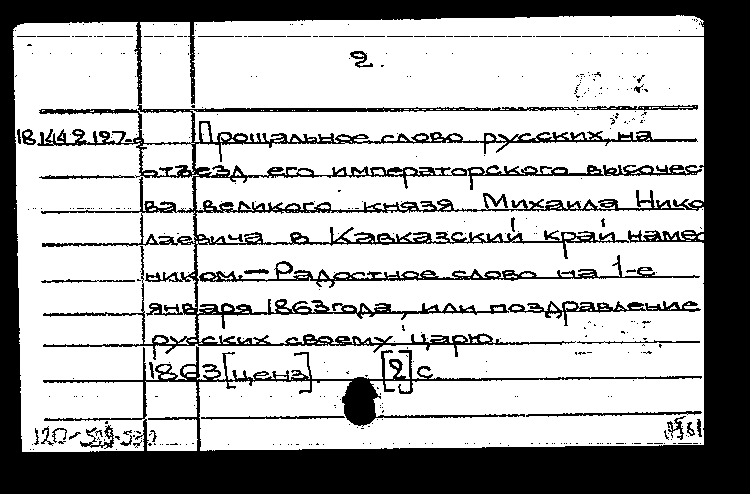 2.
18.442.127-a Прощальное слово русских, на
отъезд его императорского высочес
ва великого князя Михаила Нико
лаевича в Кавказский край намес
ником.—Радостное слово на 1-е
января 1863 года, или поздравление
русских своему царю.
1863 [ценз]. [2] с